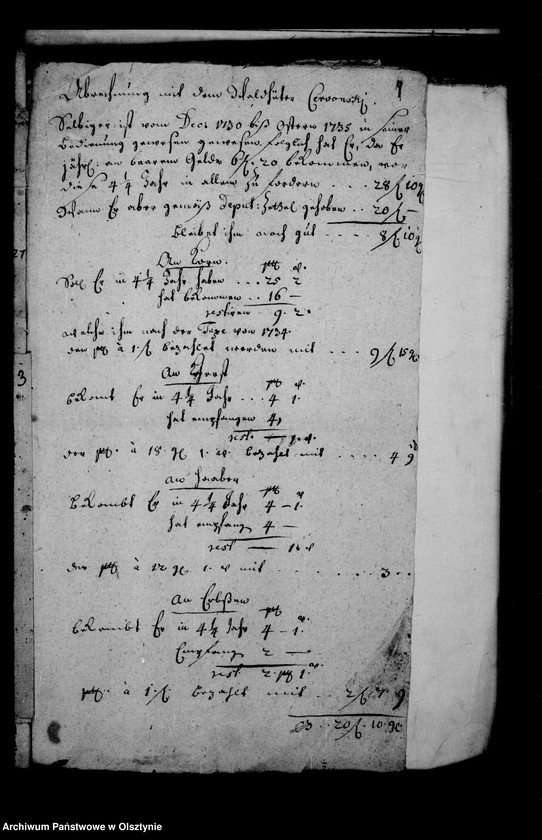 4
Abrechnung mit dem Waldhüter
Selbiger ist vom Dec: 1730 biß Ostern 1735 in seiner
Bedienung gewesen gewesen, folglich hat Er, da Er
jährl: an baarem Gelde 20 bekommen, vor
die 4 1/4 Jahr in allem zu fordern . . . . 28 10
Wann Er aber gemäß Deput: Zettel gehoben . . 20 —
bleibet ihm noch gut . . . . 8 10
An Korn.
Soll Er in 4 1/4 Jahr haben . . . 25 2
hat bekommen . . 16 —
restiren 9 2
welche ihm nach der Taxe von 1734.
den à 1 bezahlet werden mit . . . 9 15
An Gerst
bekomt Er in 4 1/4 Jahr . . . 4 1.
hat empfangen 4
rest. — 1.
der à 18 1. bezahlt mit . . . . 4
An Haaber
bekombt Er in 4 1/4 Jahr 4 — 1.
hat empfang 4 —
rest — 1
den à 12 1. mit . . . . . . 3 . .
An Erbßen
bekombt Er in 4 1/4 Jahr 4 — 1.
Empfang 2 —
rest 2 1.
à 1 bezahlt mit . . 2 9
20 10
27
3
Archiwum Państwowe w Olsztynie